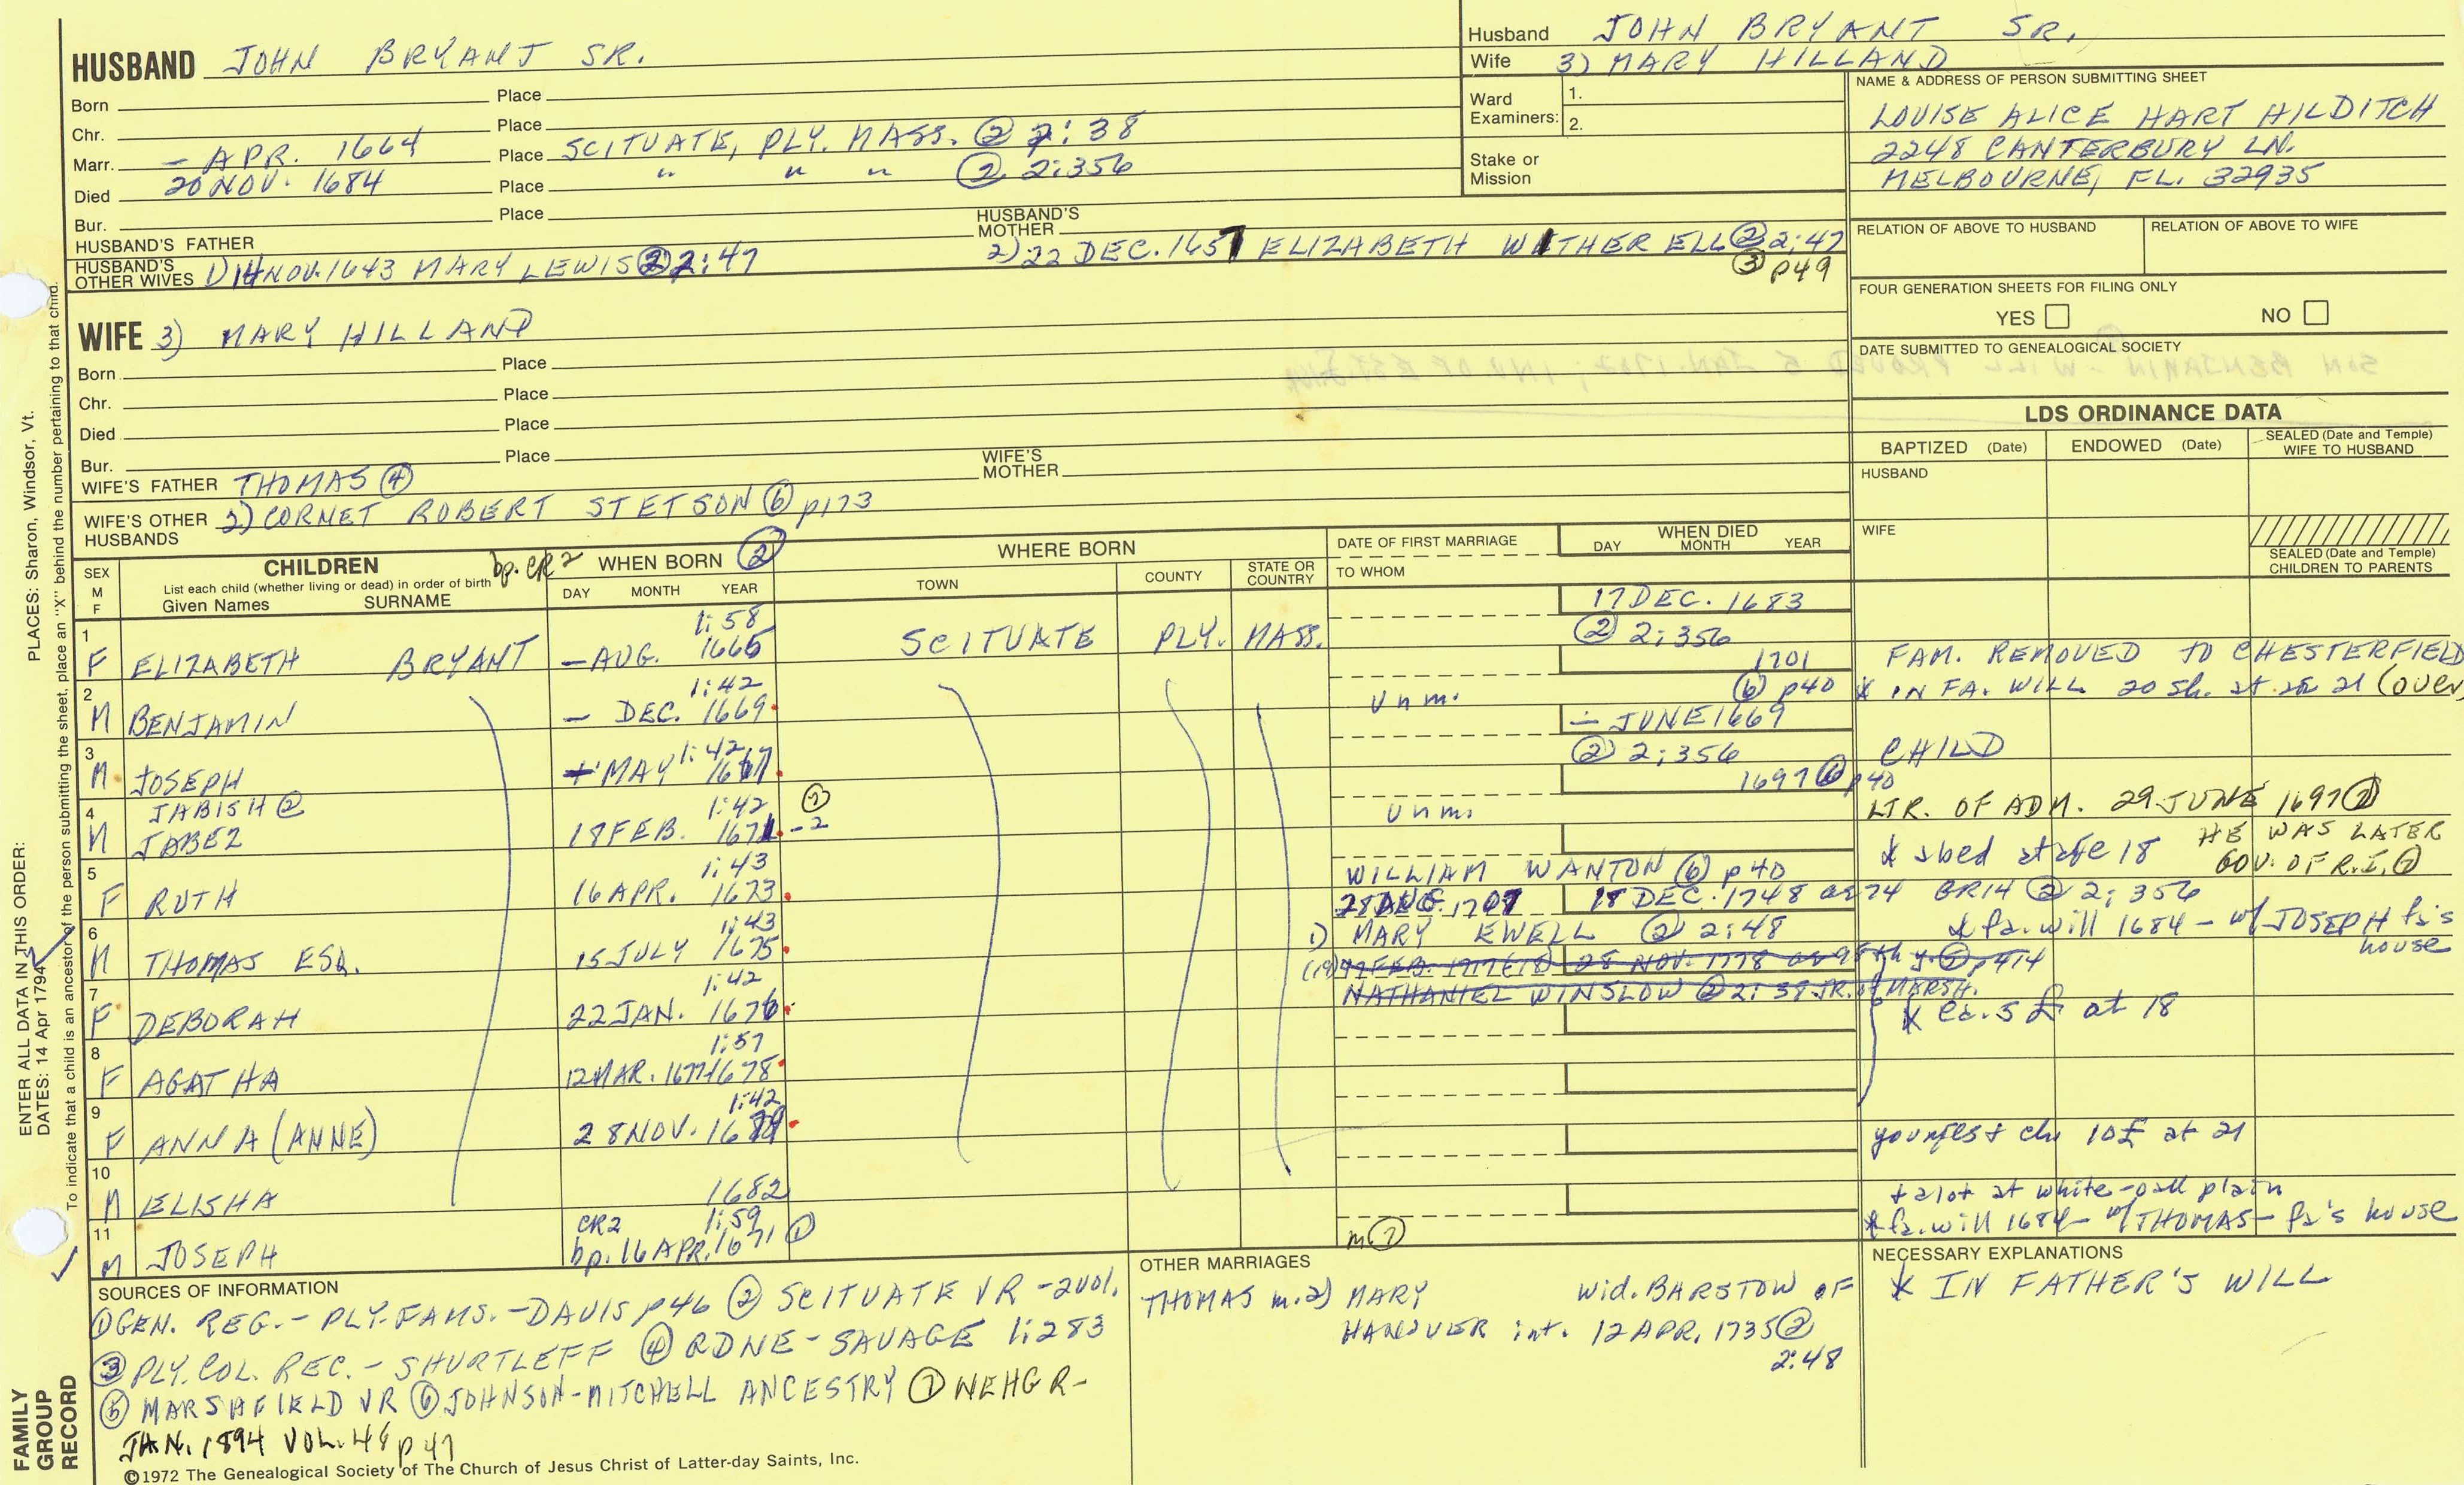 HUSBAND JOHN BRYANT SR.
Born Place
Chr. Place
Marr. - APR. 1664 Place SCITUATE, PLY. MASS. ② 2:38
Died 20 NOV. 1684 Place " " " ② 2:356
Bur. Place
HUSBAND'S FATHER HUSBAND'S MOTHER
HUSBAND'S OTHER WIVES 1) 14 NOV. 1643 MARY LEWIS ② 2:47 2) 22 DEC. 1657 ELIZABETH WITHERELL ② 2:47
③ p49
Husband JOHN BRYANT SR.
Wife 3) MARY HILLAND
Ward Examiners: 1.
2.
Stake or Mission
NAME & ADDRESS OF PERSON SUBMITTING SHEET
LOUISE ALICE HART HILDITCH
2248 CANTERBURY LN.
MELBOURNE, FL. 32935
RELATION OF ABOVE TO HUSBAND RELATION OF ABOVE TO WIFE
FOUR GENERATION SHEETS FOR FILING ONLY
YES NO
DATE SUBMITTED TO GENEALOGICAL SOCIETY
WIFE 3) MARY HILLAND
Born Place
Chr. Place
Died Place
Bur. Place
WIFE'S FATHER THOMAS ④ WIFE'S MOTHER
WIFE'S OTHER HUSBANDS 2) CORNET ROBERT STETSON ⑥ p173
LDS ORDINANCE DATA
BAPTIZED (Date) ENDOWED (Date) SEALED (Date and Temple) WIFE TO HUSBAND
HUSBAND
WIFE
SEALED (Date and Temple) CHILDREN TO PARENTS
SEX M F
CHILDREN
List each child (whether living or dead) in order of birth
Given Names SURNAME
bp. CR2 WHEN BORN ②
DAY MONTH YEAR
WHERE BORN
TOWN COUNTY STATE OR COUNTRY
DATE OF FIRST MARRIAGE
TO WHOM
WHEN DIED
DAY MONTH YEAR
1:58 17 DEC. 1683
1 F ELIZABETH BRYANT - AUG. 1665 SCITUATE PLY. MASS. ② 2:356
1:42 1701 FAM. REMOVED TO CHESTERFIELD
2 M BENJAMIN - DEC. 1669 unm. ⑥ p40 * IN FA. WILL 20 sh. at 21 (over
1:42 - JUNE 1669
3 M JOSEPH MAY 1667 ② 2:356 CHILD
JABISH ② 1:42 ⑦ 1697 ⑥ p40
4 M JABEZ 18 FEB. 1671-2 unm. LTR. OF ADM. 29 JUNE 1697 ⑦
1:43 HE WAS LATER
5 F RUTH 16 APR. 1673 WILLIAM WANTON ⑥ p40 * at 18 GOV. OF R.I. ⑦
1:43 1707 18 DEC. 1748 GR14 ② 2:356
6 M THOMAS ESQ. 15 JULY 1675 1) MARY EWELL ② 2:48 * fa. will 1684 - w/ JOSEPH fa's house
1:42 FEB. 1717(18) 28 NOV. 1778 ⑤ p414
7 F DEBORAH 22 JAN. 1676 NATHANIEL WINSLOW ② 2:38 JR. of MARSH.
* ea. 5 £ at 18
1:57
8 F AGATHA 12 MAR. 1677/1678
1:42
9 F ANNA (ANNE) 28 NOV. youngest ch. 10£ at 21
10 M ELISHA 1682
+ a lot at white-oak plain
CR2 1:59
11 M JOSEPH bp. 16 APR. 1671 ① m ⑦ * fa. will 1684 - w/ THOMAS - fa's house
SOURCES OF INFORMATION
① GEN. REG. - PLY. FAMS. - DAVIS p46 ② SCITUATE VR - 2 vol.
③ PLY. COL. REC. - SHURTLEFF ④ RDNE - SAVAGE 1:283
⑤ MARSHFIELD VR ⑥ JOHNSON-MITCHELL ANCESTRY ⑦ NEHGR -
JAN. 1894 VOL. 48 p 47
OTHER MARRIAGES
THOMAS m. 2) MARY wid. BARSTOW OF
HANOVER int. 12 APR. 1735 ②
2:48
NECESSARY EXPLANATIONS
* IN FATHER'S WILL
©1972 The Genealogical Society of The Church of Jesus Christ of Latter-day Saints, Inc.
FAMILY GROUP RECORD
ENTER ALL DATA IN THIS ORDER:
DATES: 14 Apr 1794
PLACES: Sharon, Windsor, Vt.
To indicate that a child is an ancestor of the person submitting the sheet, place an "X" behind the number pertaining to that child.